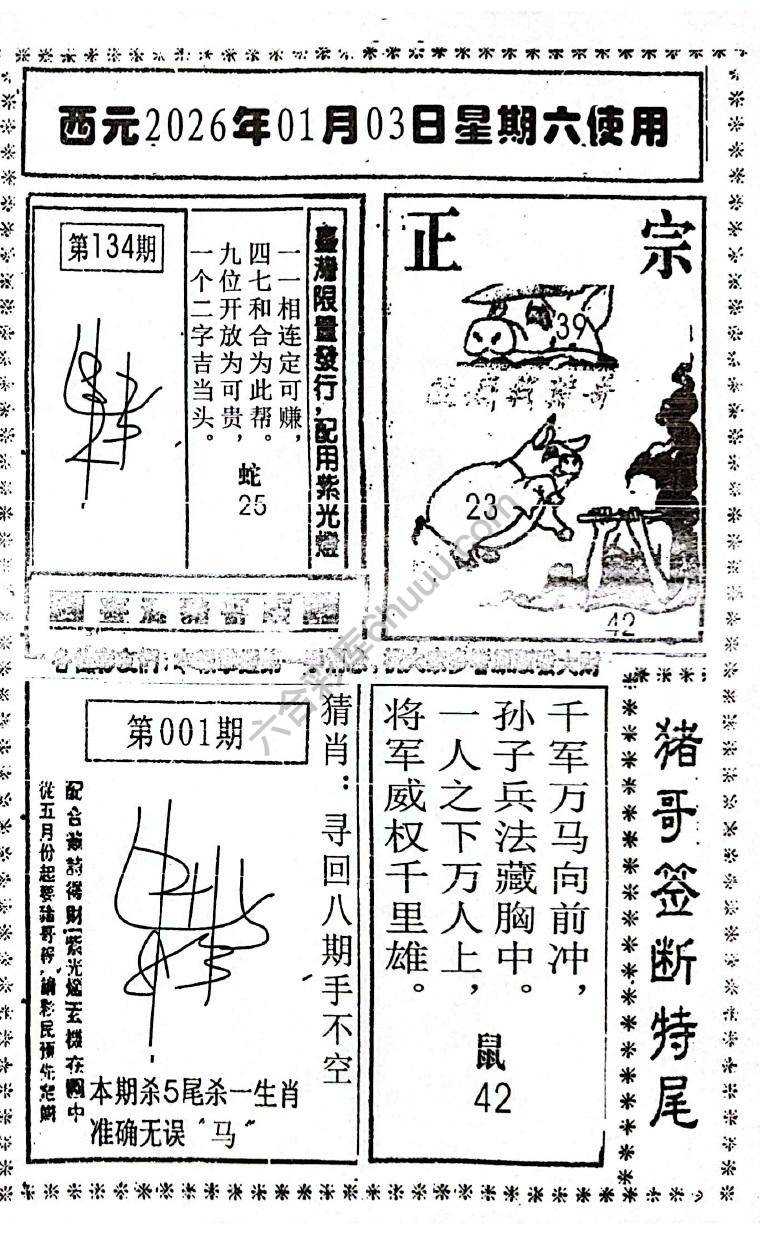 西元2026年01月03日星期六使用
第134期
臺灣限量發行,配用紫光燈
一一相连定可赚,
四七和合为此帮。
九位开放为可贵,
一个二字吉当头。
蛇
25
正宗
39
23
42
六合彩库chuuu.com
第001期
猜肖：寻回八期手不空
配合籤詩得財!紫光燈玄機在圖中
從五月份起要豬哥報,請彩民預先定購
本期杀5尾杀一生肖
准确无误“马”
千军万马向前冲,
孙子兵法藏胸中。
一人之下万人上,
将军威权千里雄。
鼠
42
猪哥签断特尾